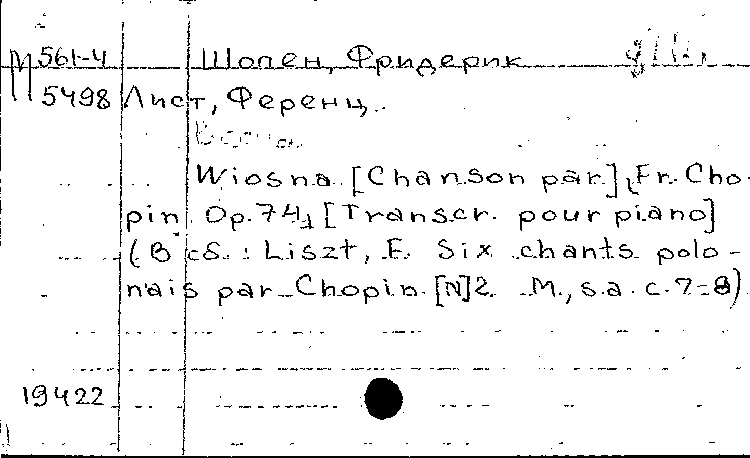 М 561-4 Шопен, Фридерик
5498 Лист, Ференц.
Весна.
Wiosna [Chanson par] Fr. Cho-
pin. Op. 74, [Transcr. pour piano]
(В сб.: Liszt, F. Six chants polo-
nais par Chopin. [N]2. M., s.a. c. 7-8)
19422